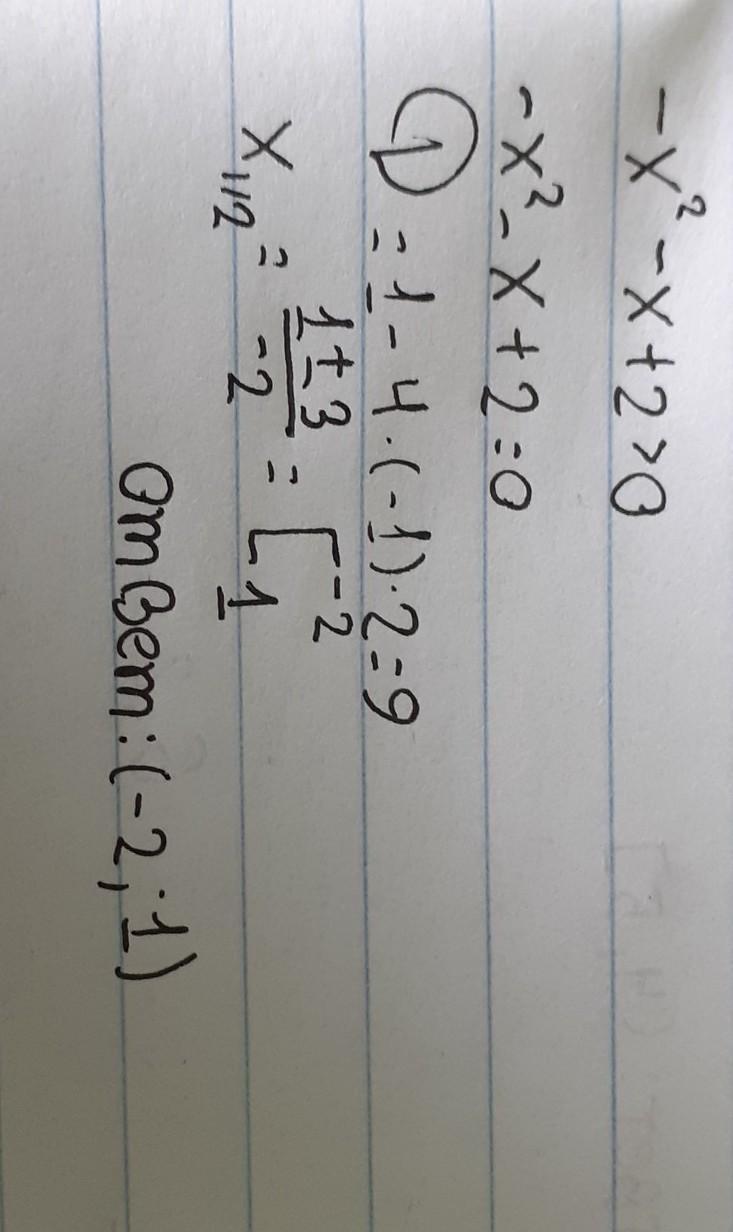 -x² - x + 2 > 0
-x² - x + 2 = 0
① = 1 - 4 · (-1) · 2 = 9
x₁,₂ = (1 ± 3)/(-2) = [-2 1
Ответ: (-2; 1)